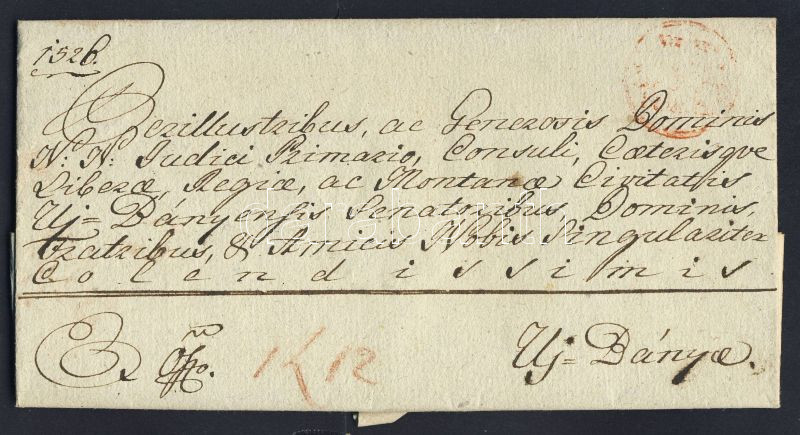 1526.
Perillustribus, ac Generosis Dominis
N. N. Iudici Primario, Consuli, Cæterisque
Liberæ, Regiæ, ac Montanæ Civitatis
Uj=Dányensis Senatoribus, Dominis,
Fratribus, & Amicis Nobis Singulariter
Colendissimis
Ex Offo.
12
Uj=Dányæ.